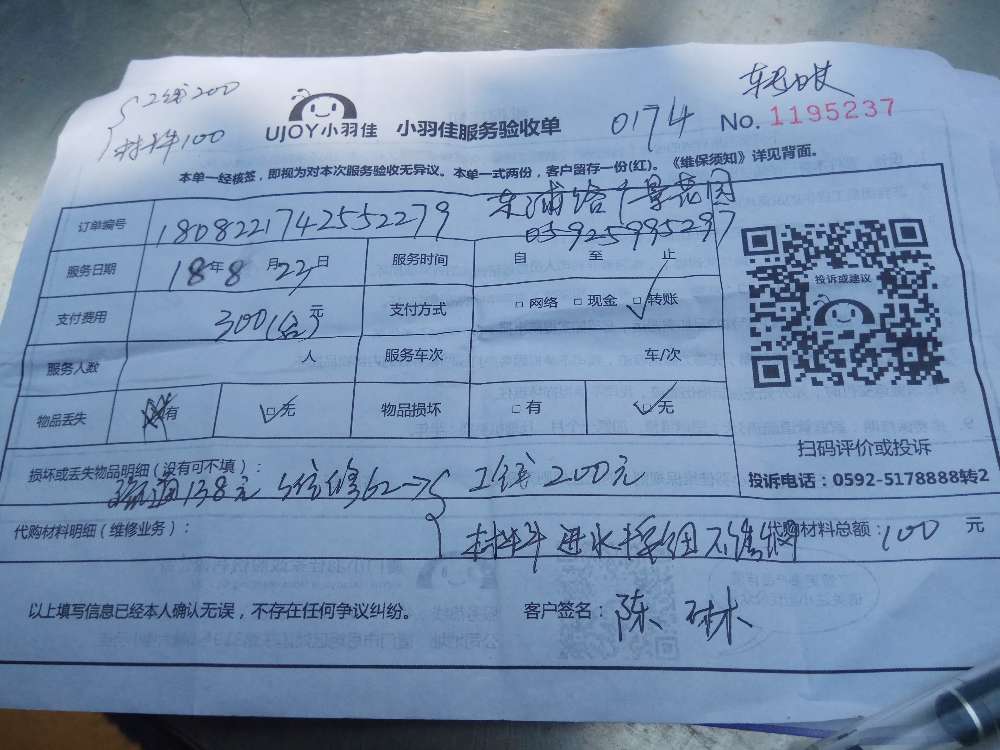 工钱200
材料100
UJOY小羽佳 小羽佳服务验收单 0174 No. 1195237
本单一经核签，即视为对本次服务验收无异议。本单一式两份，客户留存一份(红)。《维保须知》详见背面。
订单编号 1808221742552279 东浦路 景花园
05925995297
服务日期 18年8月22日 服务时间 自 至 止
支付费用 300(全)元 支付方式 □网络 □现金 □转账
服务人数 人 服务车次 车/次
投诉或建议
物品丢失 有 □无 物品损坏 □有 □无
扫码评价或投诉
损坏或丢失物品明细（没有可不填）：
疏通138元 维修62 工钱200元
投诉电话：0592-5178888转2
代购材料明细（维修业务）： 材料 进水 代购材料总额：100 元
以上填写信息已经本人确认无误，不存在任何争议纠纷。 客户签名：陈 琳